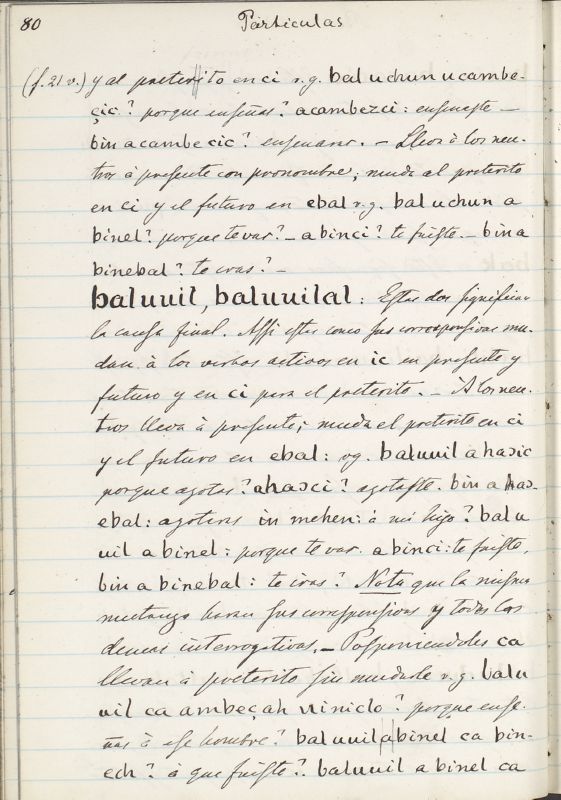 80 Particulas
(f. 21 v.) y al preterito en ci v.g. bal uchun u cambe-
çic? porque enseñas? a cambezci: enseñaste –
bin a cambecic? enseñaras. – Lleva à los neu-
tros à presente con pronombre; muda al preterito
en ci y el futuro en ebal v.g. bal uchun a
binel? porque te vas? – a binci? te fuiste. – bin a
binebal? te iras? –
baluuil, baluuilal: Estas dos significan
la causa final. Assi estas como sus corresponsivas mu-
dan à los verbos activos en ic en presente y
futuro y en ci para el preterito. – À los neu-
tros lleva à presente; muda el preterito en ci
y el futuro en ebal: vg. baluuil a haɔic
porque azotas? ahaɔci? azotaste. bin a haɔ-
ebal: azotiras in mehen: à mi hijo? balu
uil a binel: porque te vas. a binci: te fuiste,
bin a binebal: te iras? Nota que la misma
mutanza haran sus corresponsivas y todas las
demas interrogativas. – Posponiendoles ca
llevan à preterito sin mudarle v.g. balu
uil ca ambeçah uiniclo? porque ense-
ñas à ese hombre? baluuil a binel ca bin-
ech? à que fuiste? baluuil a binel ca